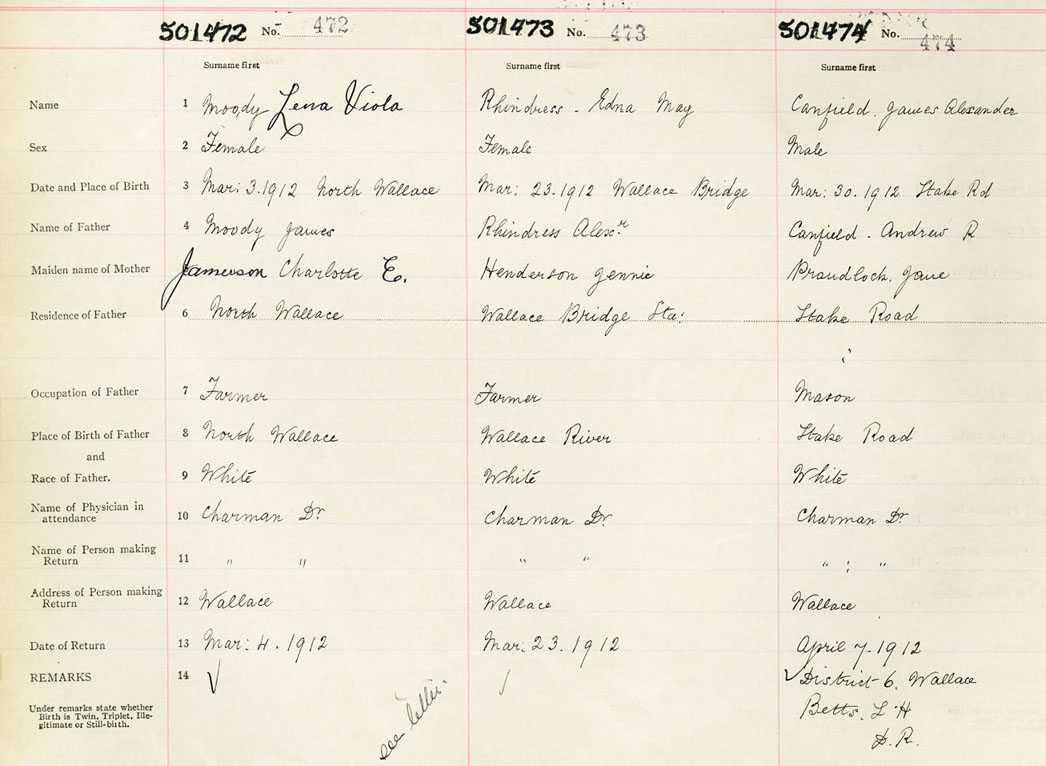 501472 No. 472 501473 No. 473 501474 No. 474
Surname first Surname first Surname first
Name 1 Moody Lena Viola Rhindress - Edna May Canfield. James Alexander
Sex 2 Female Female Male
Date and Place of Birth 3 Mar: 3.1912 North Wallace Mar: 23.1912 Wallace Bridge Mar: 30.1912 Stake Rd
Name of Father 4 Moody James Rhindress Alexr Canfield. Andrew R
Maiden name of Mother Jamerson Charlotte E. Henderson Jennie Jane
Residence of Father 6 North Wallace Wallace Bridge Sta: Stake Road
Occupation of Father 7 Farmer Farmer Mason
Place of Birth of Father 8 North Wallace Wallace River Stake Road
and
Race of Father. 9 White White White
Name of Physician in
attendance 10 Charman Dr Charman Dr. Charman Dr.
Name of Person making
Return 11 " " " " " "
Address of Person making
Return 12 Wallace Wallace Wallace
Date of Return 13 Mar: 4.1912 Mar: 23.1912 April 7.1912
REMARKS 14 ✓ ✓ ✓ District 6. Wallace
Under remarks state whether
Birth is Twin, Triplet, Ille-
gitimate or Still-birth.
see letter.
Betts. L H
D.R.